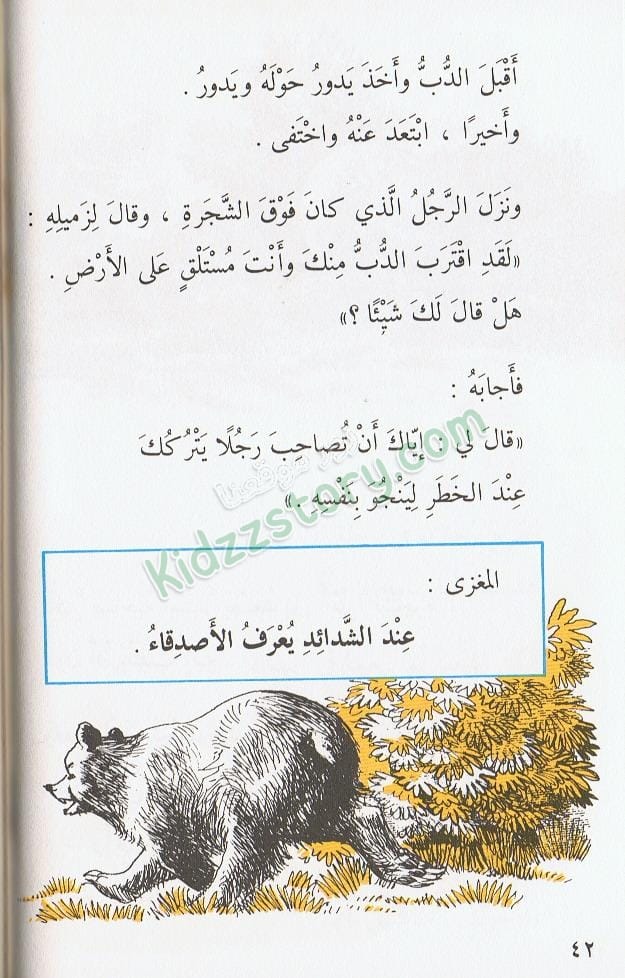 أَقْبَلَ الدُّبُّ وأَخَذَ يَدورُ حَوْلَهُ ويَدورُ .
وأَخيرًا ، ابْتَعَدَ عَنْهُ واخْتَفى .
ونَزَلَ الرَّجُلُ الَّذي كانَ فَوْقَ الشَّجَرةِ ، وقالَ لِزَميلِهِ :
«لَقَدِ اقْتَرَبَ الدُّبُّ مِنْكَ وأَنْتَ مُسْتَلْقٍ عَلى الأَرْضِ .
هَلْ قالَ لَكَ شَيْئًا ؟»
فأَجابَهُ :
«قالَ لي : إيّاكَ أَنْ تُصاحِبَ رَجُلًا يَتْرُكُكَ
عِنْدَ الخَطَرِ لِيَنْجُوَ بِنَفْسِهِ .»
موقعنا
Kidzzstory.com
المغزى :
عِنْدَ الشَّدائِدِ يُعْرَفُ الأَصدِقاءُ .
٤٢